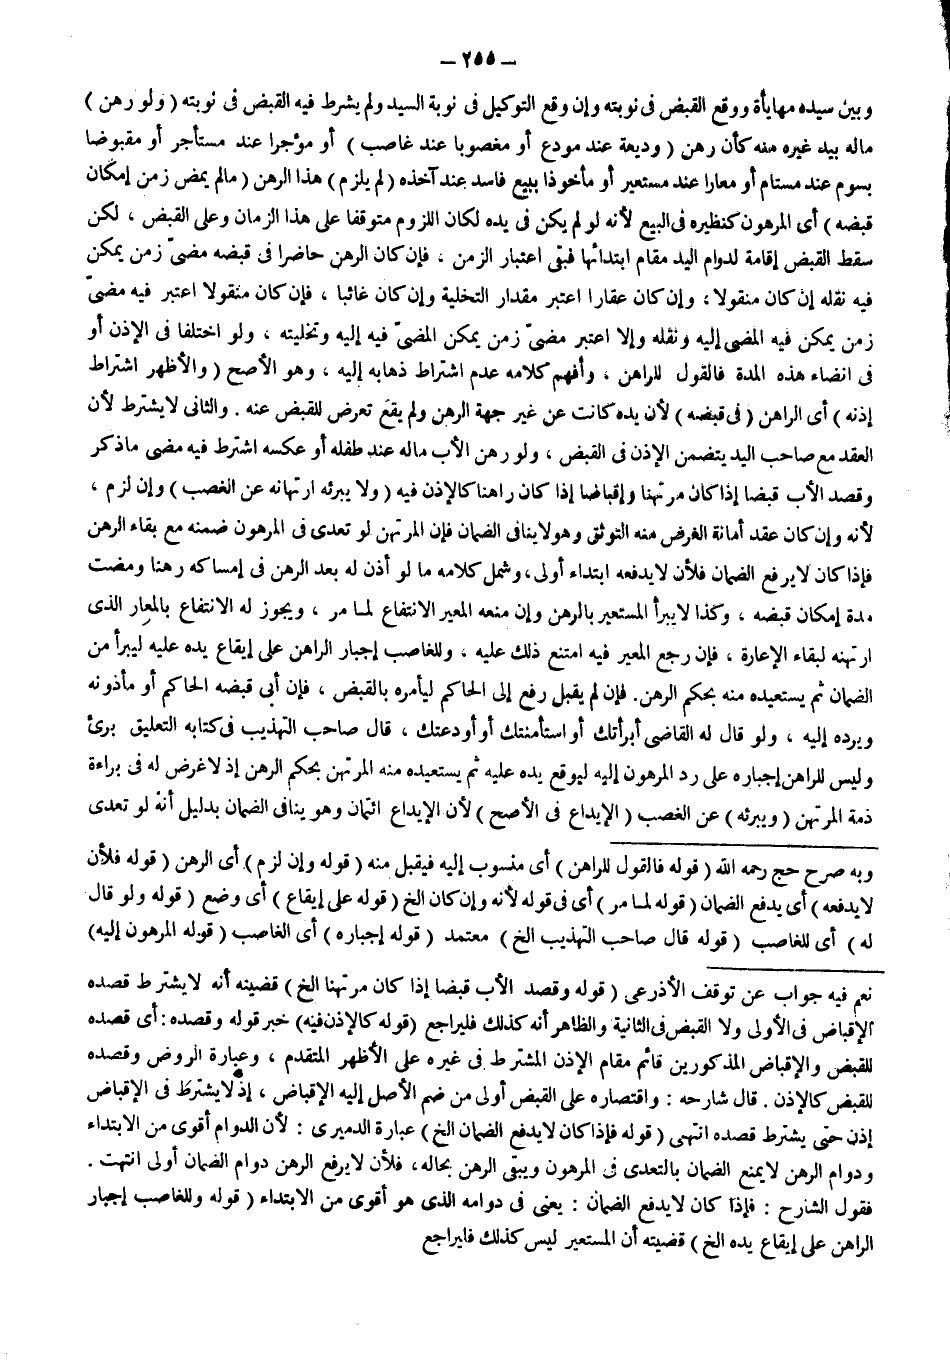 — ٢٥٥ —
وبين سيده مهايأة ووقع القبض فى نوبته وإن وقع التوكيل فى نوبة السيد ولم يشرط فيه القبض فى نوبته ( ولو رهن )
ماله بيد غيره منه كأن رهن ( وديعة عند مودع أو مغصوبا عند غاصب ) أو مؤجرا عند مستأجر أو مقبوضا
بسوم عند مستام أو معارا عند مستعير أو مأخوذا ببيع فاسد عند آخذه ( لم يلزم ) هذا الرهن ( مالم يمض زمن إمكان
قبضه ) أى المرهون كنظيره فى البيع لأنه لو لم يكن فى يده لكان اللزوم متوقفا على هذا الزمان وعلى القبض ، لكن
سقط القبض إقامة لدوام اليد مقام ابتدائها فبقى اعتبار الزمن ، فإن كان الرهن حاضرا فى قبضه مضىّ زمن يمكن
فيه نقله إن كان منقولا ، وإن كان عقارا اعتبر مقدار التخلية وإن كان غائبا ، فإن كان منقولا اعتبر فيه مضىّ
زمن يمكن فيه المضى إليه ونقله وإلا اعتبر مضىّ زمن يمكن المضىّ فيه إليه وتخليته ، ولو اختلفا فى الإذن أو
فى انضاء هذه المدة فالقول للراهن ، وأفهم كلامه عدم اشتراط ذهابه إليه ، وهو الأصح ( والأظهر اشتراط
إذنه ) أى الراهن ( فى قبضه ) لأن يده كانت عن غير جهة الرهن ولم يقع تعرض للقبض عنه . والثانى لا يشترط لأن
العقد مع صاحب اليد يتضمن الإذن فى القبض ، ولو رهن الأب ماله عند طفله أو عكسه اشترط فيه مضى ماذكر
وقصد الأب قبضا إذا كان مرتهنا وإقباضا إذا كان راهنا كالإذن فيه ( ولا يبرئه ارتهانه عن الغصب ) وإن لزم ،
لأنه وإن كان عقد أمانة الغرض منه التوثق وهو لاينافى الضمان فإن المرتهن لو تعدى فى المرهون ضمنه مع بقاء الرهن
فإذا كان لايرفع الضمان فلأن لايدفعه ابتداء أولى ، وشمل كلامه ما لو أذن له بعد الرهن فى إمساكه رهنا ومضت
مدة إمكان قبضه ، وكذا لا يبرأ المستعير بالرهن وإن منعه المعير الانتفاع لما مر ، ويجوز له الانتفاع بالمعار الذى
ارتهنه لبقاء الإعارة ، فإن رجع المعير فيه امتنع ذلك عليه ، وللغاصب إجبار الراهن على إيقاع يده عليه ليبرأ من
الضمان ثم يستعيده منه بحكم الرهن . فإن لم يقبل رفع إلى الحاكم ليأمره بالقبض ، فإن أبى قبضه الحاكم أو مأذونه
ويرده إليه ، ولو قال له القاضى أبرأتك أو استأمنتك أو أودعتك ، قال صاحب التهذيب فى كتابه التعليق برئ
وليس للراهن إجباره على رد المرهون إليه ليوقع يده عليه ثم يستعيده منه المرتهن بحكم الرهن إذ لاغرض له فى براءة
ذمة المرتهن ( ويبرئه ) عن الغصب ( الإيداع فى الأصح ) لأن الإيداع ائتمان وهو ينافى الضمان بدليل أنه لو تعدى
وبه صرح حج رحمه الله ( قوله فالقول للراهن ) أى منسوب إليه فيقبل منه ( قوله وإن لزم ) أى الرهن ( قوله فلأن
لايدفعه ) أى يدفع الضمان ( قوله لما مر ) أى فى قوله لأنه وإن كان الخ ( قوله على إيقاع ) أى وضع ( قوله ولو قال
له ) أى للغاصب ( قوله قال صاحب التهذيب الخ ) معتمد ( قوله إجباره ) أى الغاصب ( قوله المرهون إليه)
نعم فيه جواب عن توقف الأذرعى ( قوله وقصد الأب قبضا إذا كان مرتهنا الخ ) قضيته أنه لا يشترط قصده
الإقباض فى الأولى ولا القبض فى الثانية والظاهر أنه كذلك فليراجع ( قوله كالإذن فيه) خبر قوله وقصده : أى قصده
للقبض والإقباض المذكورين قائم مقام الإذن المشترط فى غيره على الأظهر المتقدم ، وعبارة الروض وقصده
للقبض كالإذن . قال شارحه : واقتصاره على القبض أولى من ضم الأصل إليه الإقباض ، إذ لايشترط فى الإقباض
إذن حتى يشترط قصده انتهى ( قوله فإذا كان لايدفع الضمان الخ ) عبارة الدميرى : لأن الدوام أقوى من الابتداء
ودوام الرهن لايمنع الضمان بالتعدى فى المرهون ويبقى الرهن بحاله ، فلأن لايرفع الرهن دوام الضمان أولى انتهت .
فقول الشارح : فإذا كان لايدفع الضمان : يعنى فى دوامه الذى هو أقوى من الابتداء ( قوله وللغاصب إجبار
الراهن على إيقاع يده الخ ) قضيته أن المستعير ليس كذلك فايراجع